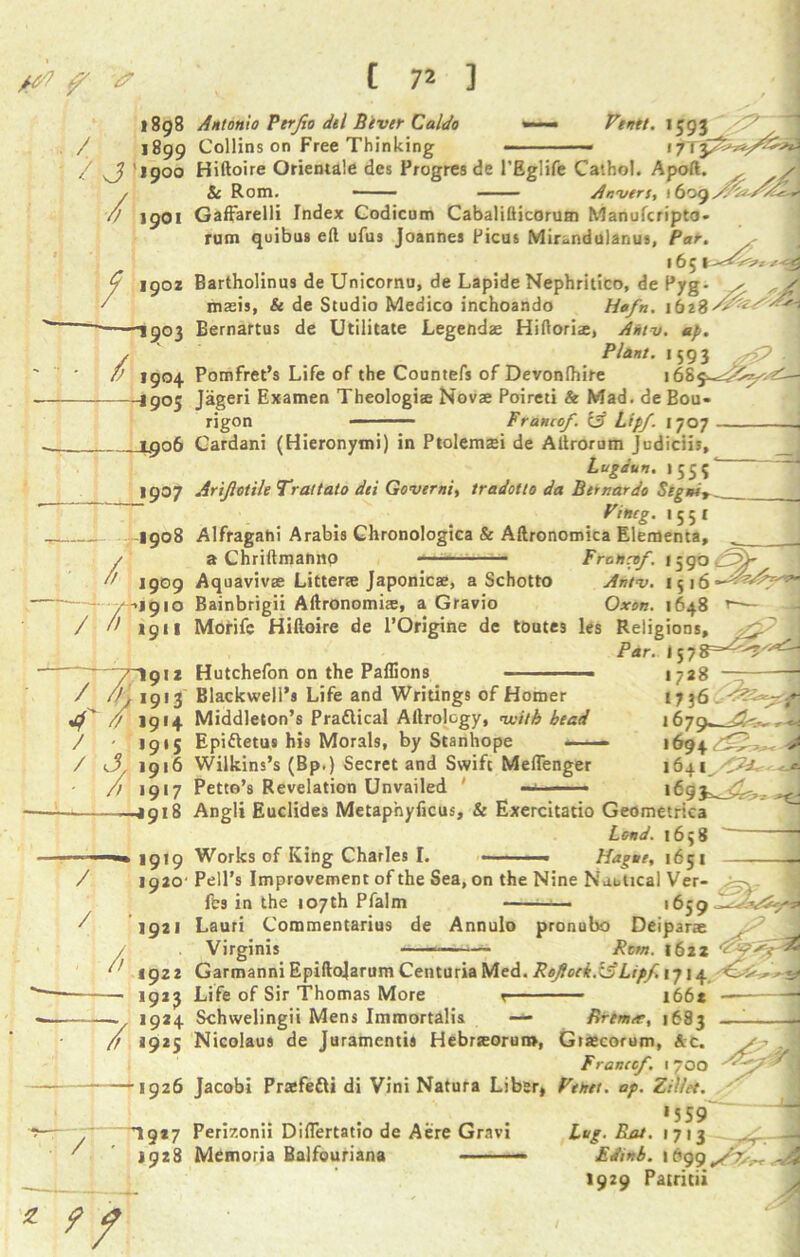 [ 72 ]
1898 Antonio Perſio del Bever Caldo —— Venet. 1593
1899 Collins on Free Thinking —— 1713
1900 Hiſtoire Orientale des Progres de l'Egliſe Cathol. Apoſt.
& Rom. —— —— Anvers, 1609
1901 Gaffarelli Index Codicum Cabaliſticorum Manuſcripto-
rum quibus eſt uſus Joannes Picus Mirandulanus, Par.
1651
1902 Bartholinus de Unicornu, de Lapide Nephritico, de Pyg-
mæis, & de Studio Medico inchoando Hafn. 1628
1903 Bernartus de Utilitate Legendæ Hiſtoriæ, Antv. ap.
Plant. 1593
1904 Pomfret's Life of the Counteſs of Devonſhire 1685
1905 Jägeri Examen Theologiæ Novæ Poireti & Mad. de Bou-
rigon —— Francof. & Lipſ. 1707
1906 Cardani (Hieronymi) in Ptolemæi de Aſtrorum Judiciis,
Lugdun. 1555
1907 Ariſtotile Trattato dei Governi, tradotto da Bernardo Segni,
Vineg. 1551
1908 Alfragani Arabis Chronologica & Aſtronomica Elementa,
a Chriſtmanno —— Francof. 1590
1909 Aquavivæ Litteræ Japonicæ, a Schotto Antv. 1516
1910 Bainbrigii Aſtronomiæ, a Gravio Oxon. 1648
1911 Moriſc Hiſtoire de l'Origine de toutes les Religions,
Par. 1578
1912 Hutcheſon on the Paſſions —— 1728
1913 Blackwell's Life and Writings of Homer 1736
1914 Middleton's Practical Aſtrology, with head 1679
1915 Epictetus his Morals, by Stanhope —— 1694
1916 Wilkins's (Bp.) Secret and Swift Meſſenger 1641
1917 Petto's Revelation Unvailed —— 1693
1918 Angli Euclides Metaphyſicus, & Exercitatio Geometrica
Lond. 1658
1919 Works of King Charles I. —— Hague, 1651
1920 Pell's Improvement of the Sea, on the Nine Nautical Ver-
ſes in the 107th Pſalm —— 1659
1921 Lauri Commentarius de Annulo pronubo Deiparæ
Virginis —— Rom. 1622
1922 Garmanni Epiſtolarum Centuria Med. Roſtock. & Lipſ. 1714
1923 Life of Sir Thomas More —— 1662
1924 Schwelingii Mens Immortalis — Bremæ, 1683
1925 Nicolaus de Juramentis Hebræorum, Græcorum, &c.
Francof. 1700
1926 Jacobi Præfecti di Vini Natura Liber, Venet. ap. Zillet.
1559
1927 Perizonii Diſſertatio de Aëre Gravi Lug. Bat. 1713
1928 Memoria Balfouriana —— Edinb. 1699
1929 Patritii